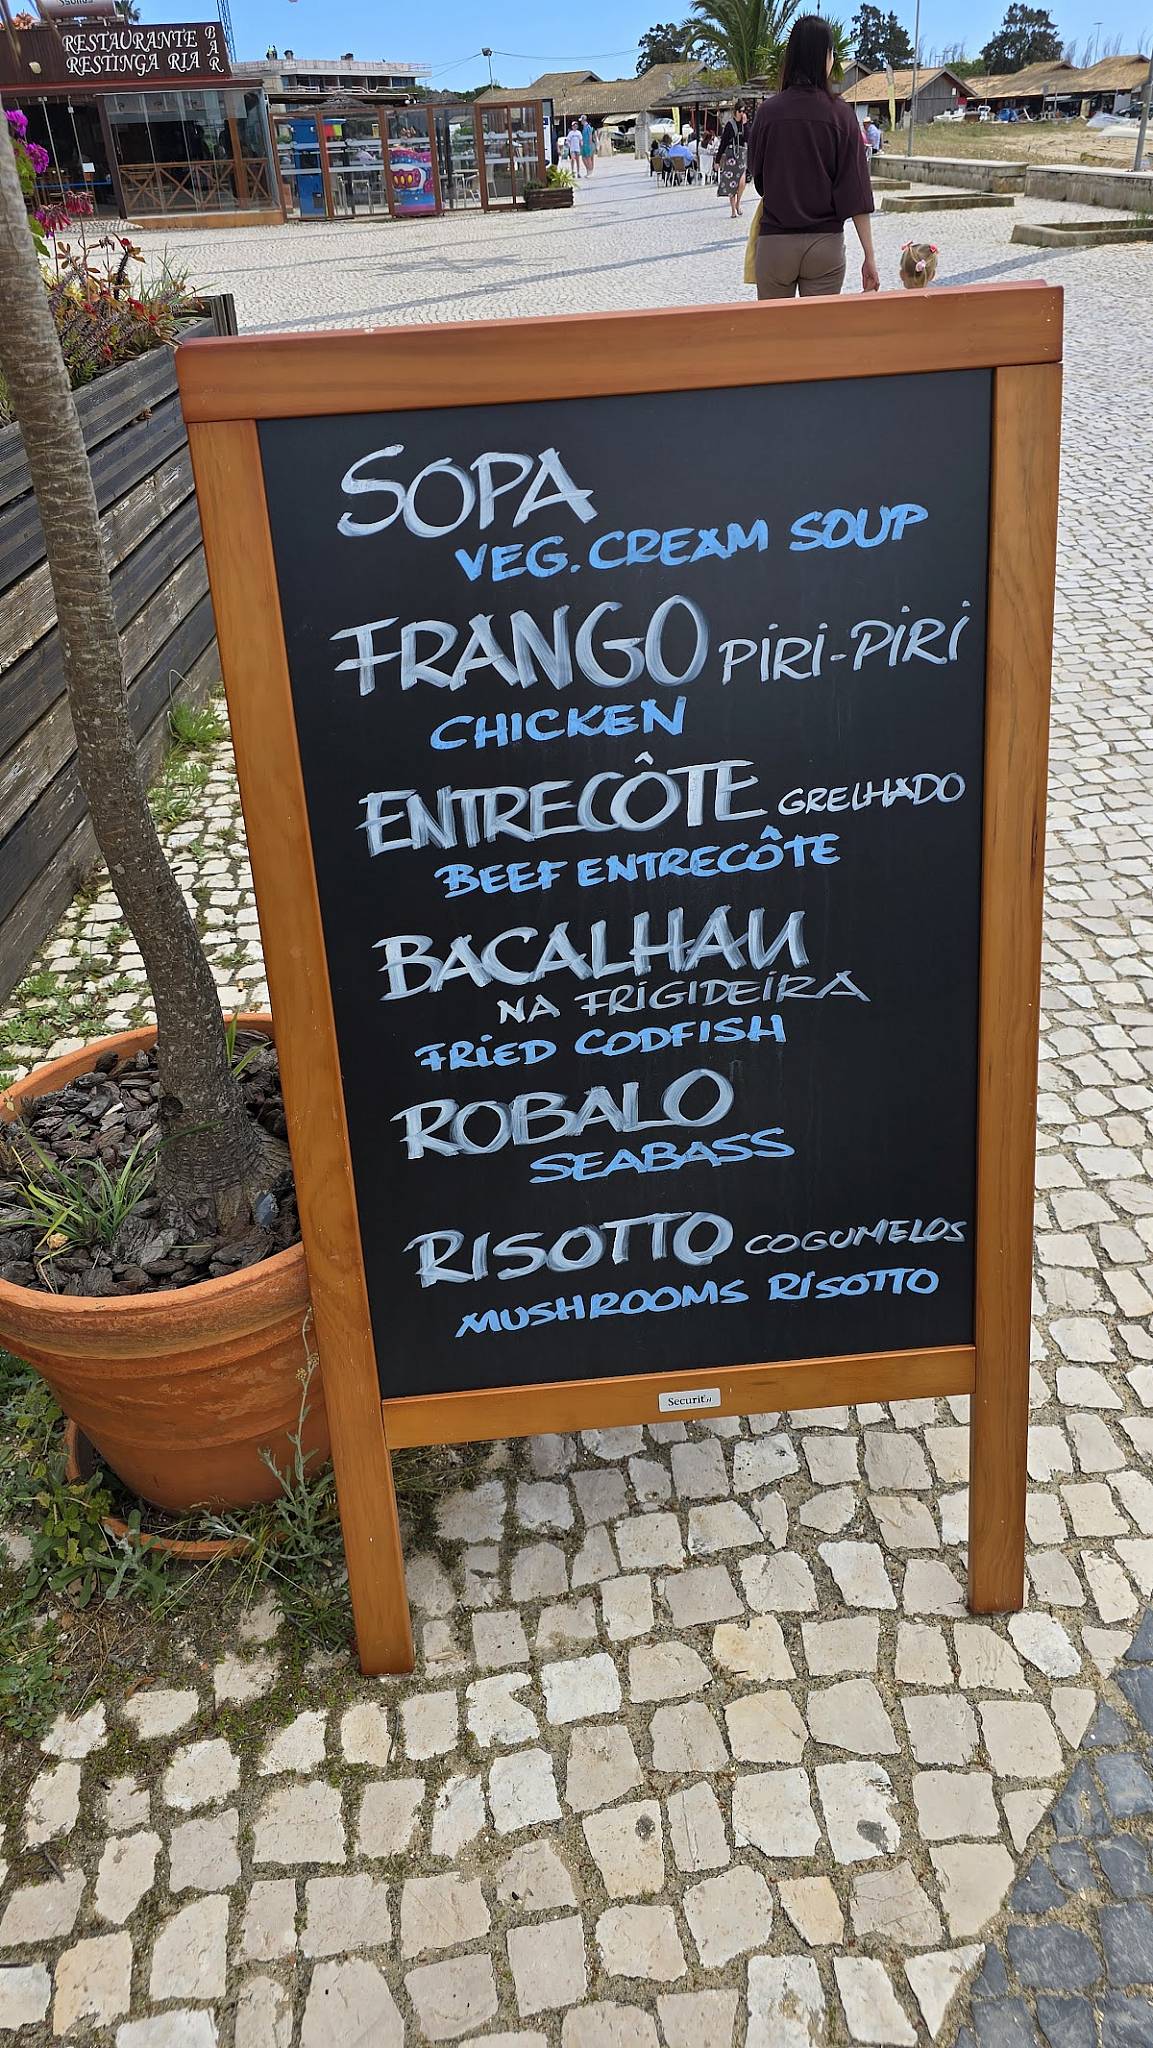 RESTAURANTE BAR
RESTINGA RIA
SOPA
VEG. CREAM SOUP
FRANGO PIRI-PIRI
CHICKEN
ENTRECÔTE GRELHADO
BEEF ENTRECÔTE
BACALHAU
NA FRIGIDEIRA
FRIED CODFISH
ROBALO
SEABASS
RISOTTO COGUMELOS
MUSHROOMS RISOTTO
Securit